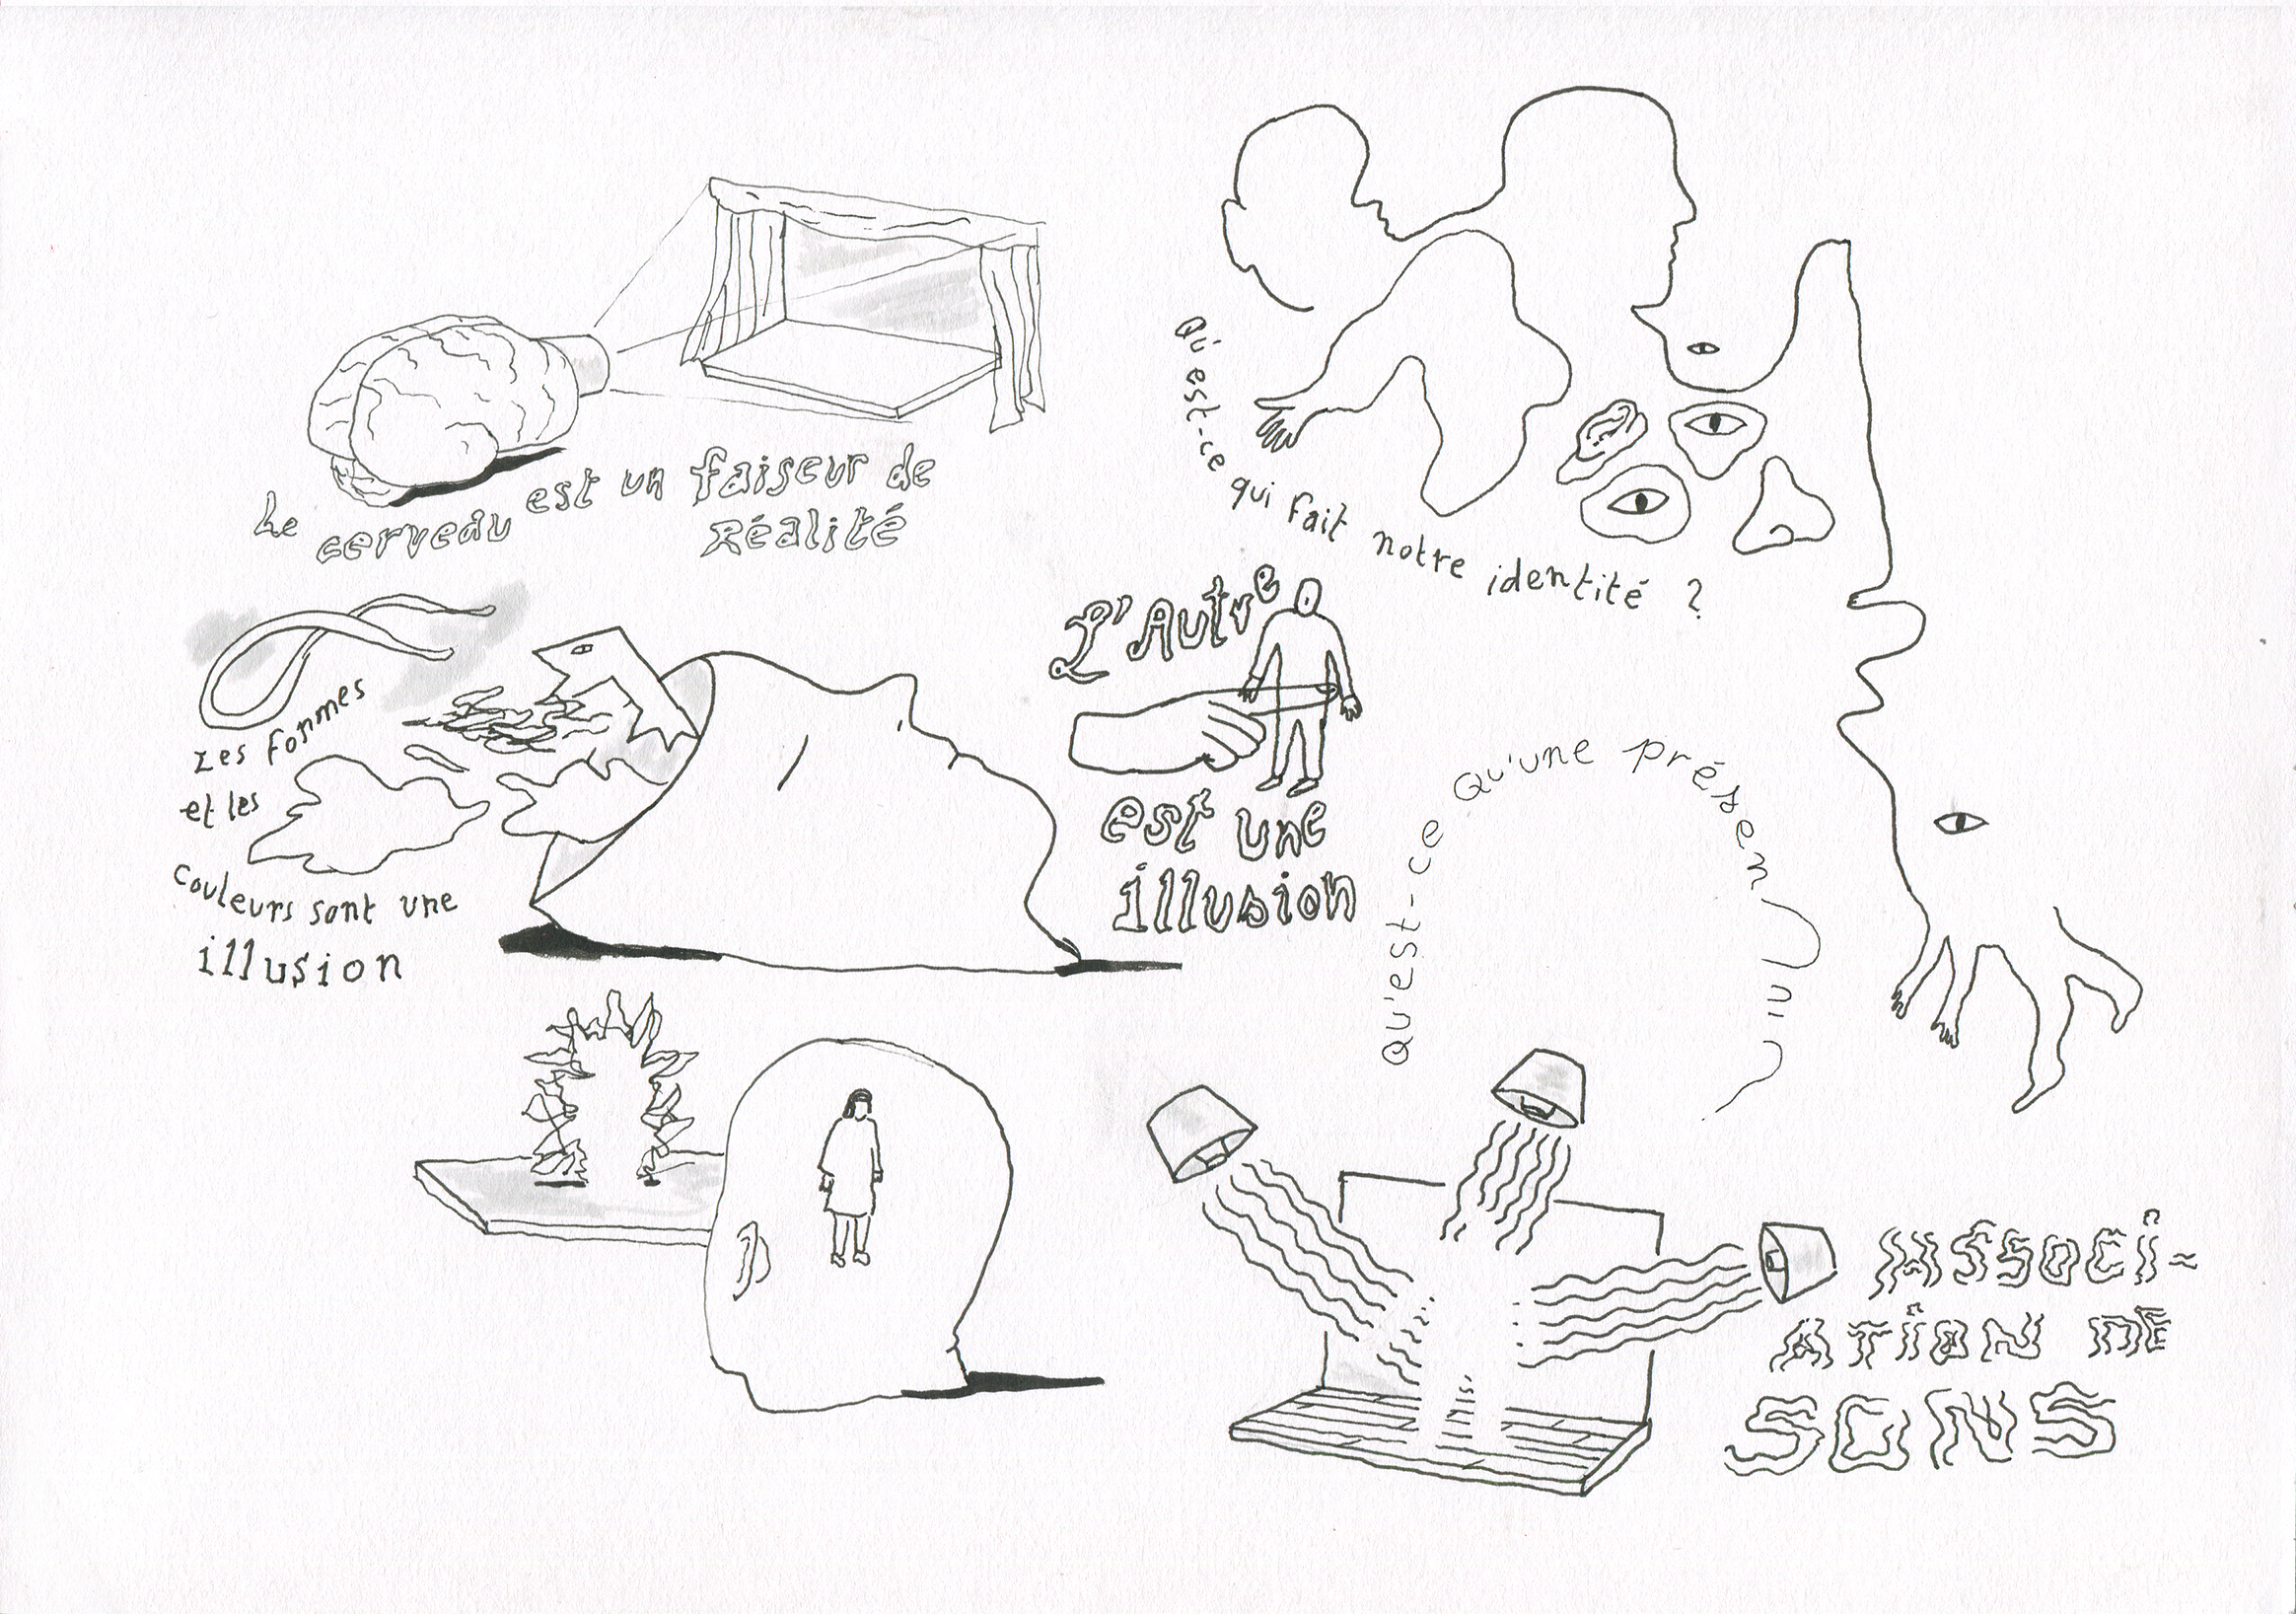 Le cerveau est un faiseur de
Réalité
Qu'est-ce qui fait notre identité ?
Les formes
et les
couleurs sont une
illusion
L'Autre
est une
illusion
Qu'est-ce qu'une présen
Associ-
ATION DE
SONS